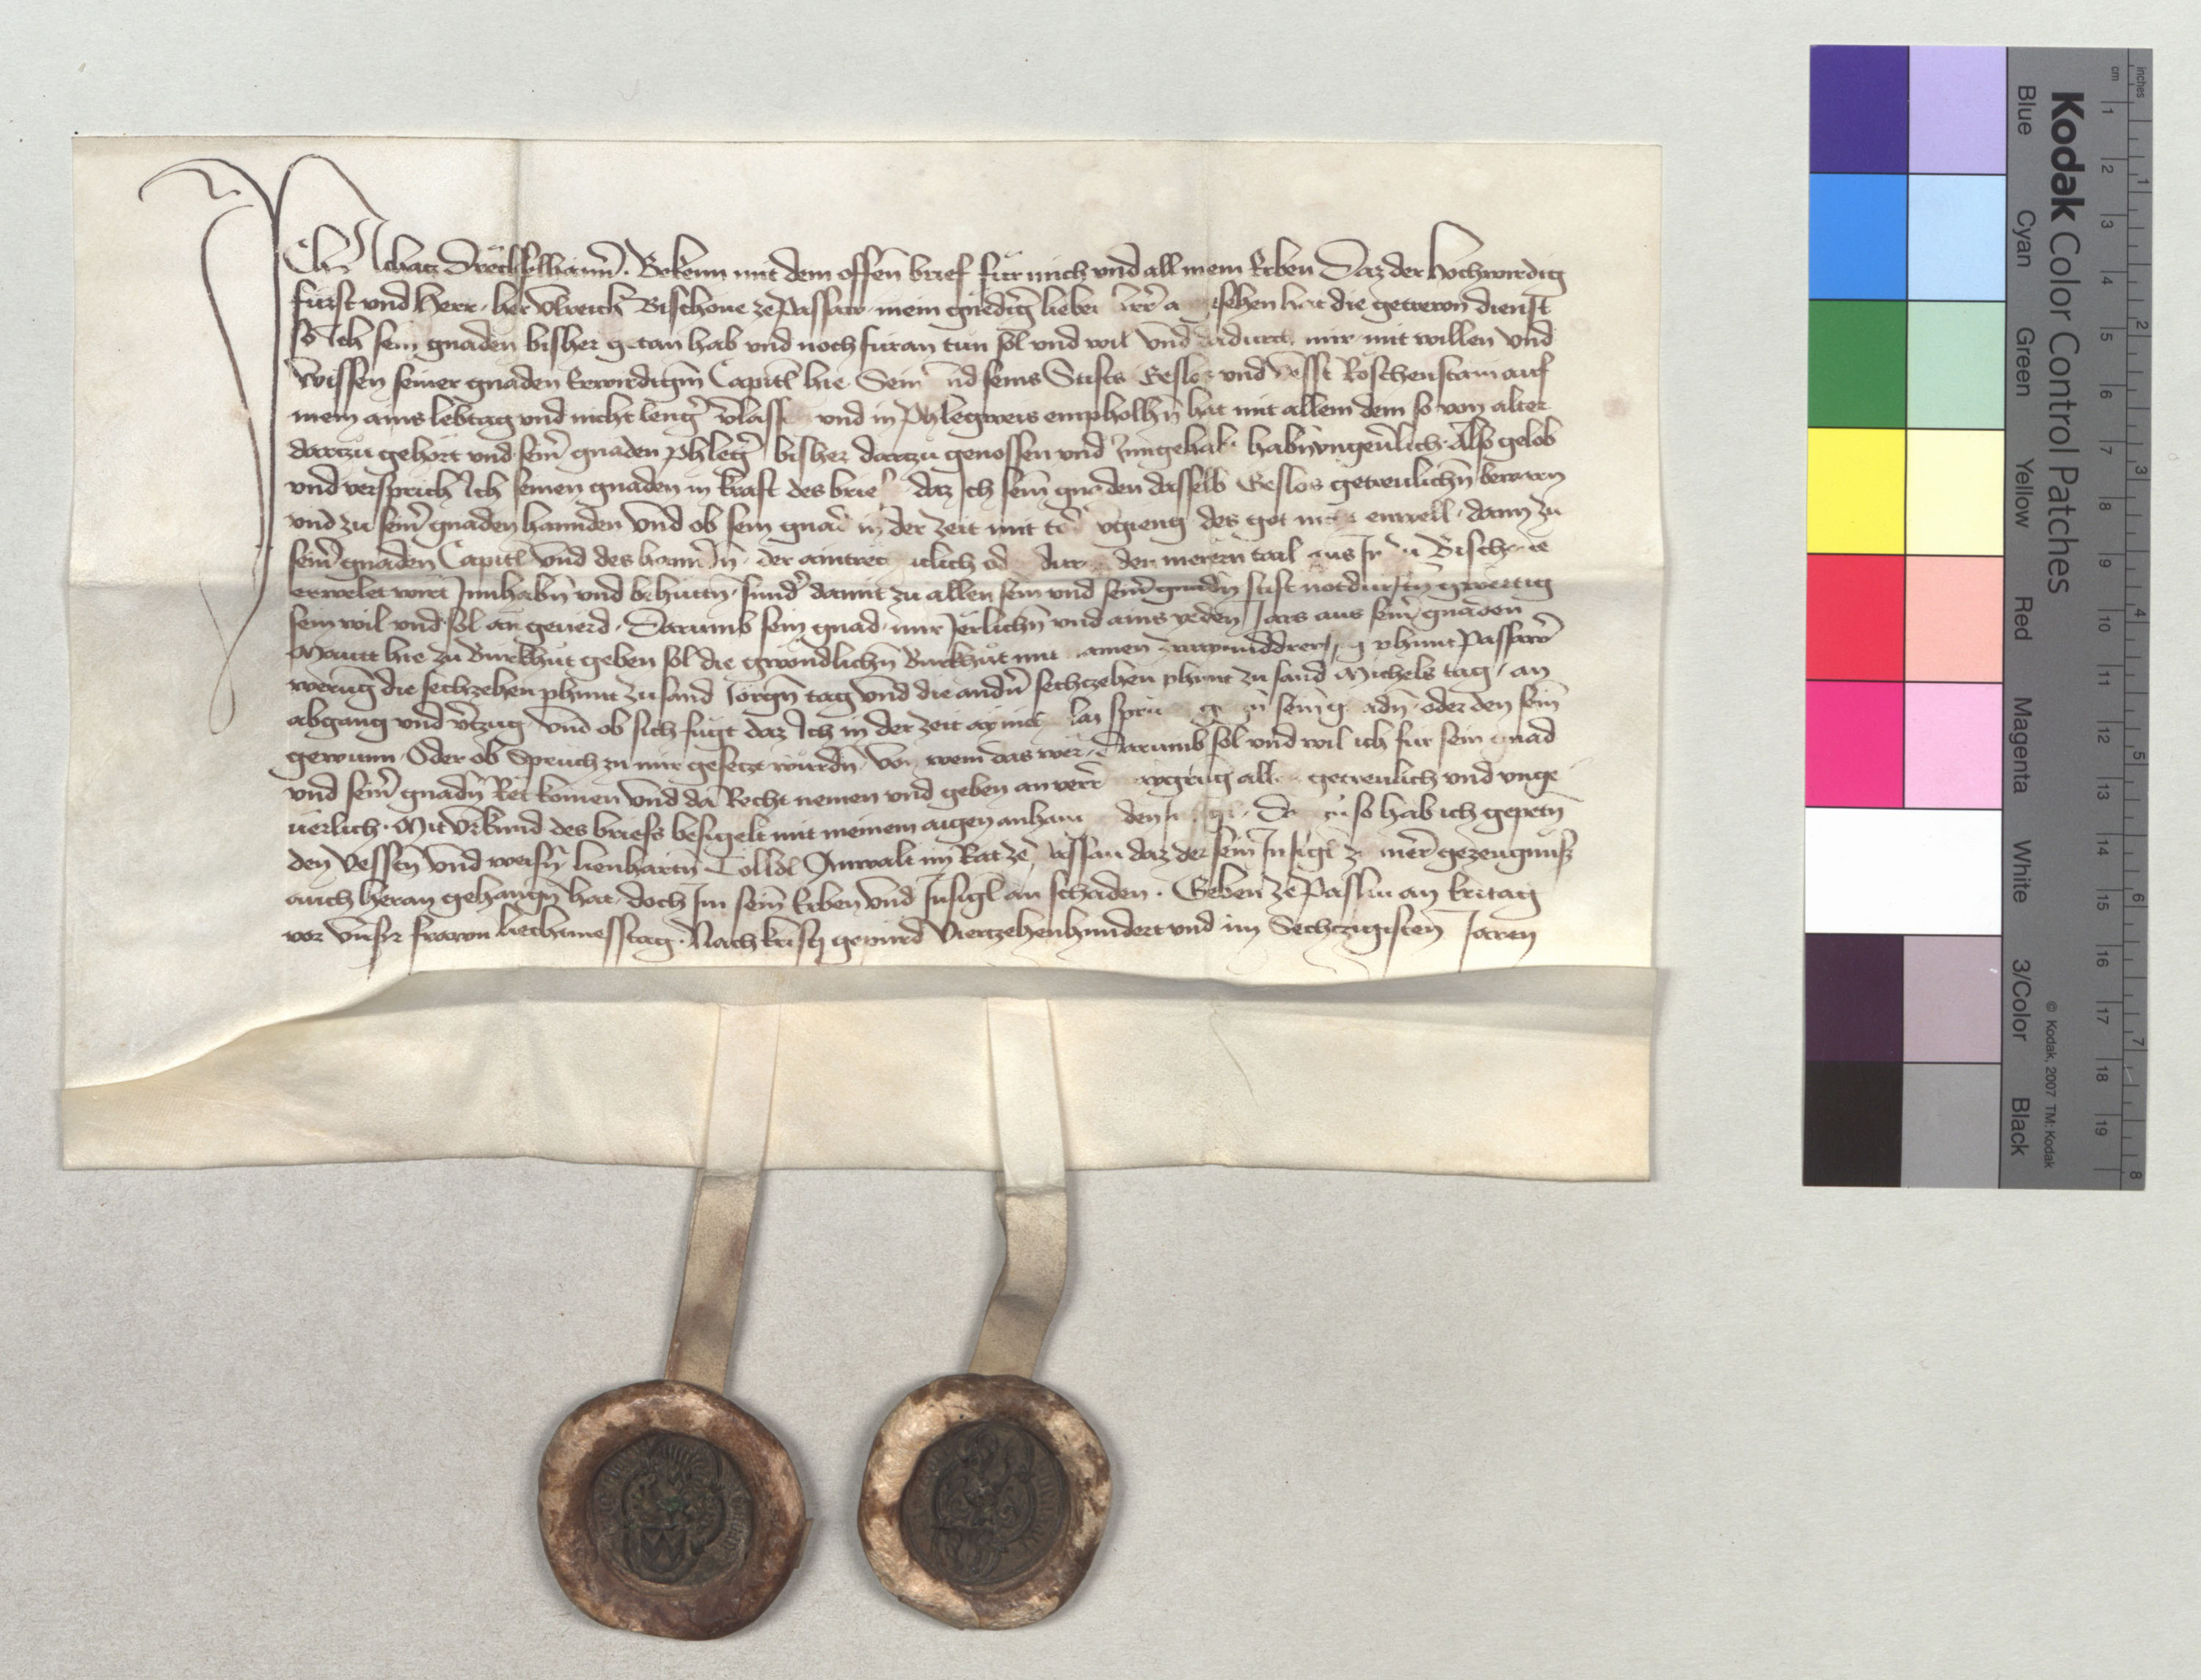 Ich Achatz Drechselhamer. Bekenn mit dem offen brief für mich und all mein Erben Daz der hochwirdig
fürst und Herr. her Ulreich Bischoue ze Passaw mein gnedig lieber herr angesehen hat die getrewn dienst
so Ich sein gnaden bisher getan hab und noch füran tun sol und wil Und dadurch mir mit willen und
wissen seiner gnaden Erwirdigm Capitl hie Sein und seins Stifts Geslos und Vesst Röschenstain auf
mein ains lebtag und nicht lengr verlassen und in Phlegweis empholhn hat mit allem dem so von alter
dartzu gehört und seinr gnaden phlegr bisher dartzu genossen und Inngehabt habn ungeuerlich. Also gelob
und versprich Ich seinen gnaden in kraft des briefs daz Ich sein gnaden dasselb Geslos getreulichn bewarn
und zu seinr gnaden hannden Und ob sein gnad in der zeit mit tod abgieng des got nicht enwell. dann zu
seinr gnaden Capitl Und des der aintrechticlich oder durch den merern tail aus In zu Bischoue
erwelet wirt Innhabn und behuttn. sunder damit zu allen sein und seinr gnadn stift notdurftn gwertig
sein wil und sol an geuerd. Darumb sein gnad mir Jerlichn und ains yeden Jars aus seinr gnaden
Mautt hie zu Burkhut geben sol die gwondlichn Burkhut mit namen zwayunddreissig phunt Passawr
werung die sechzehen phunt zu sand Jorgn tag Und die andern sechczehen phunt zu sand Michels tag. an
abgang und vertzug. Und ob sich fügt daz Ich in der zeit aynicherlay sprüch gen zu sein gnadn. oder den sein
gewunn. Oder ob Spruch zu mir gesetzt würdn Von wem das wer. Darumb sol und wil ich für sein gnad
und seinr gnadn Ret komen Und da Recht nemen und geben an verrer waygrung alles getreulich und unge
uerlich. Mit Urkund des briefs besigelt mit meinem aigen anhangunden Insigl. Dartzu so hab ich gepetn
den Vesstn Und weisn lienhartn Anwalt im Rat ze Passau daz der sein Insigl zu merer gezeugnuss
auch heran gehangn hat. doch Im sein Erben Und Insigl an schaden. Geben ze Passau an Eritag
vor Unser frawn liechtmesstag. Nach kristi gepurd Viertzehenhundert und im Sechtzigisten Jaren
Kodak Color Control Patches
Blue Cyan Green Yellow Red Magenta White 3/Color Black
© Kodak, 2007 TM: Kodak
inches 1 2 3 4 5 6 7 8
cm 1 2 3 4 5 6 7 8 9 10 11 12 13 14 15 16 17 18 19